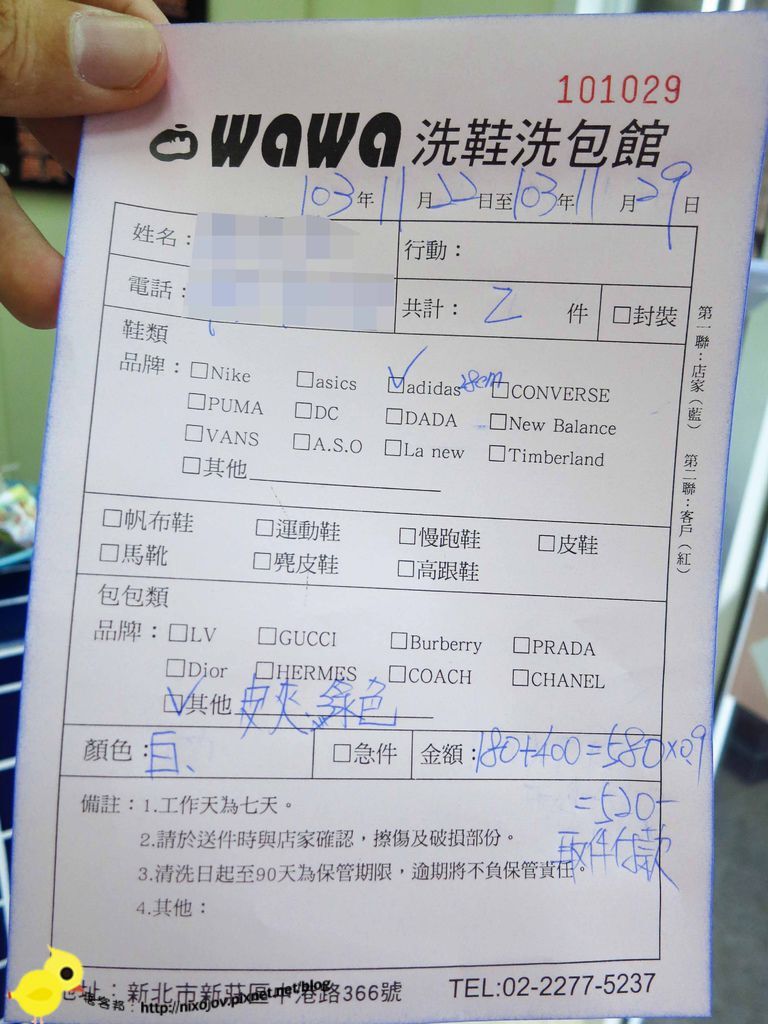 101029
wawa 洗鞋洗包館
103年11月22日至103年11月29日
姓名：
行動：
電話：
共計： 2 件 □封裝
鞋類
品牌：□Nike □asics ☑adidas 28cm □CONVERSE
□PUMA □DC □DADA □New Balance
□VANS □A.S.O □La new □Timberland
□其他
□帆布鞋 □運動鞋 □慢跑鞋 □皮鞋
□馬靴 □麂皮鞋 □高跟鞋
包包類
品牌：□LV □GUCCI □Burberry □PRADA
□Dior □HERMES □COACH □CHANEL
☑其他 皮夾、綠色
顏色：白、 □急件 金額：180+400=580×0.9
=520-
取件付款
備註：1.工作天為七天。
2.請於送件時與店家確認，擦傷及破損部份。
3.清洗日起至90天為保管期限，逾期將不負保管責任。
4.其他：
第一聯：店家（藍） 第二聯：客戶（紅）
地址：新北市新莊區中港路366號 TEL:02-2277-5237
痞客邦：http://nixojov.pixnet.net/blog